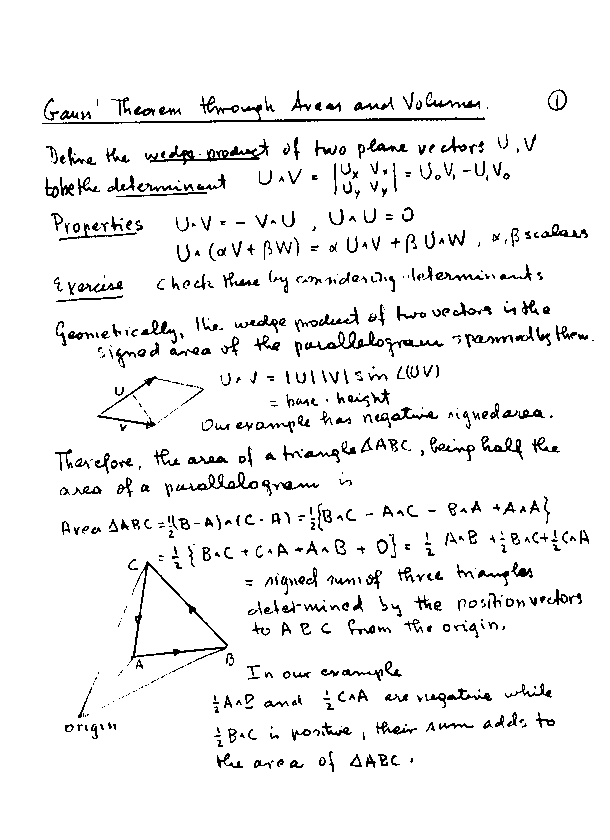 Gauss' Theorem through Areas and Volumes. ①
Define the wedge-product of two plane vectors U, V
to be the determinent U∧V = |Ux Vx Uy Vy| = U₀V₁ - U₁V₀
Properties U∧V = - V∧U , U∧U = 0
U∧(αV + βW) = α U∧V + β U∧W , α, β scalars
Exercise Check these by considering determinants
Geometrically, the wedge product of two vectors is the
signed area of the parallelogram spanned by them.
U∧V = |U||V| sin ∠(UV)
= base · height
Our example has negative signed area.
U
V
Therefore, the area of a triangle ΔABC, being half the
area of a parallelogram is
Area ΔABC = ½(B-A)∧(C-A) = ½{B∧C - A∧C - B∧A + A∧A}
= ½{B∧C + C∧A + A∧B + 0} = ½ A∧B + ½ B∧C + ½ C∧A
= signed sum of three triangles
determined by the position vectors
to A B C from the origin.
C
A
B
origin
In our example
½A∧B and ½C∧A are negative while
½B∧C is positive, their sum adds to
the area of ΔABC.